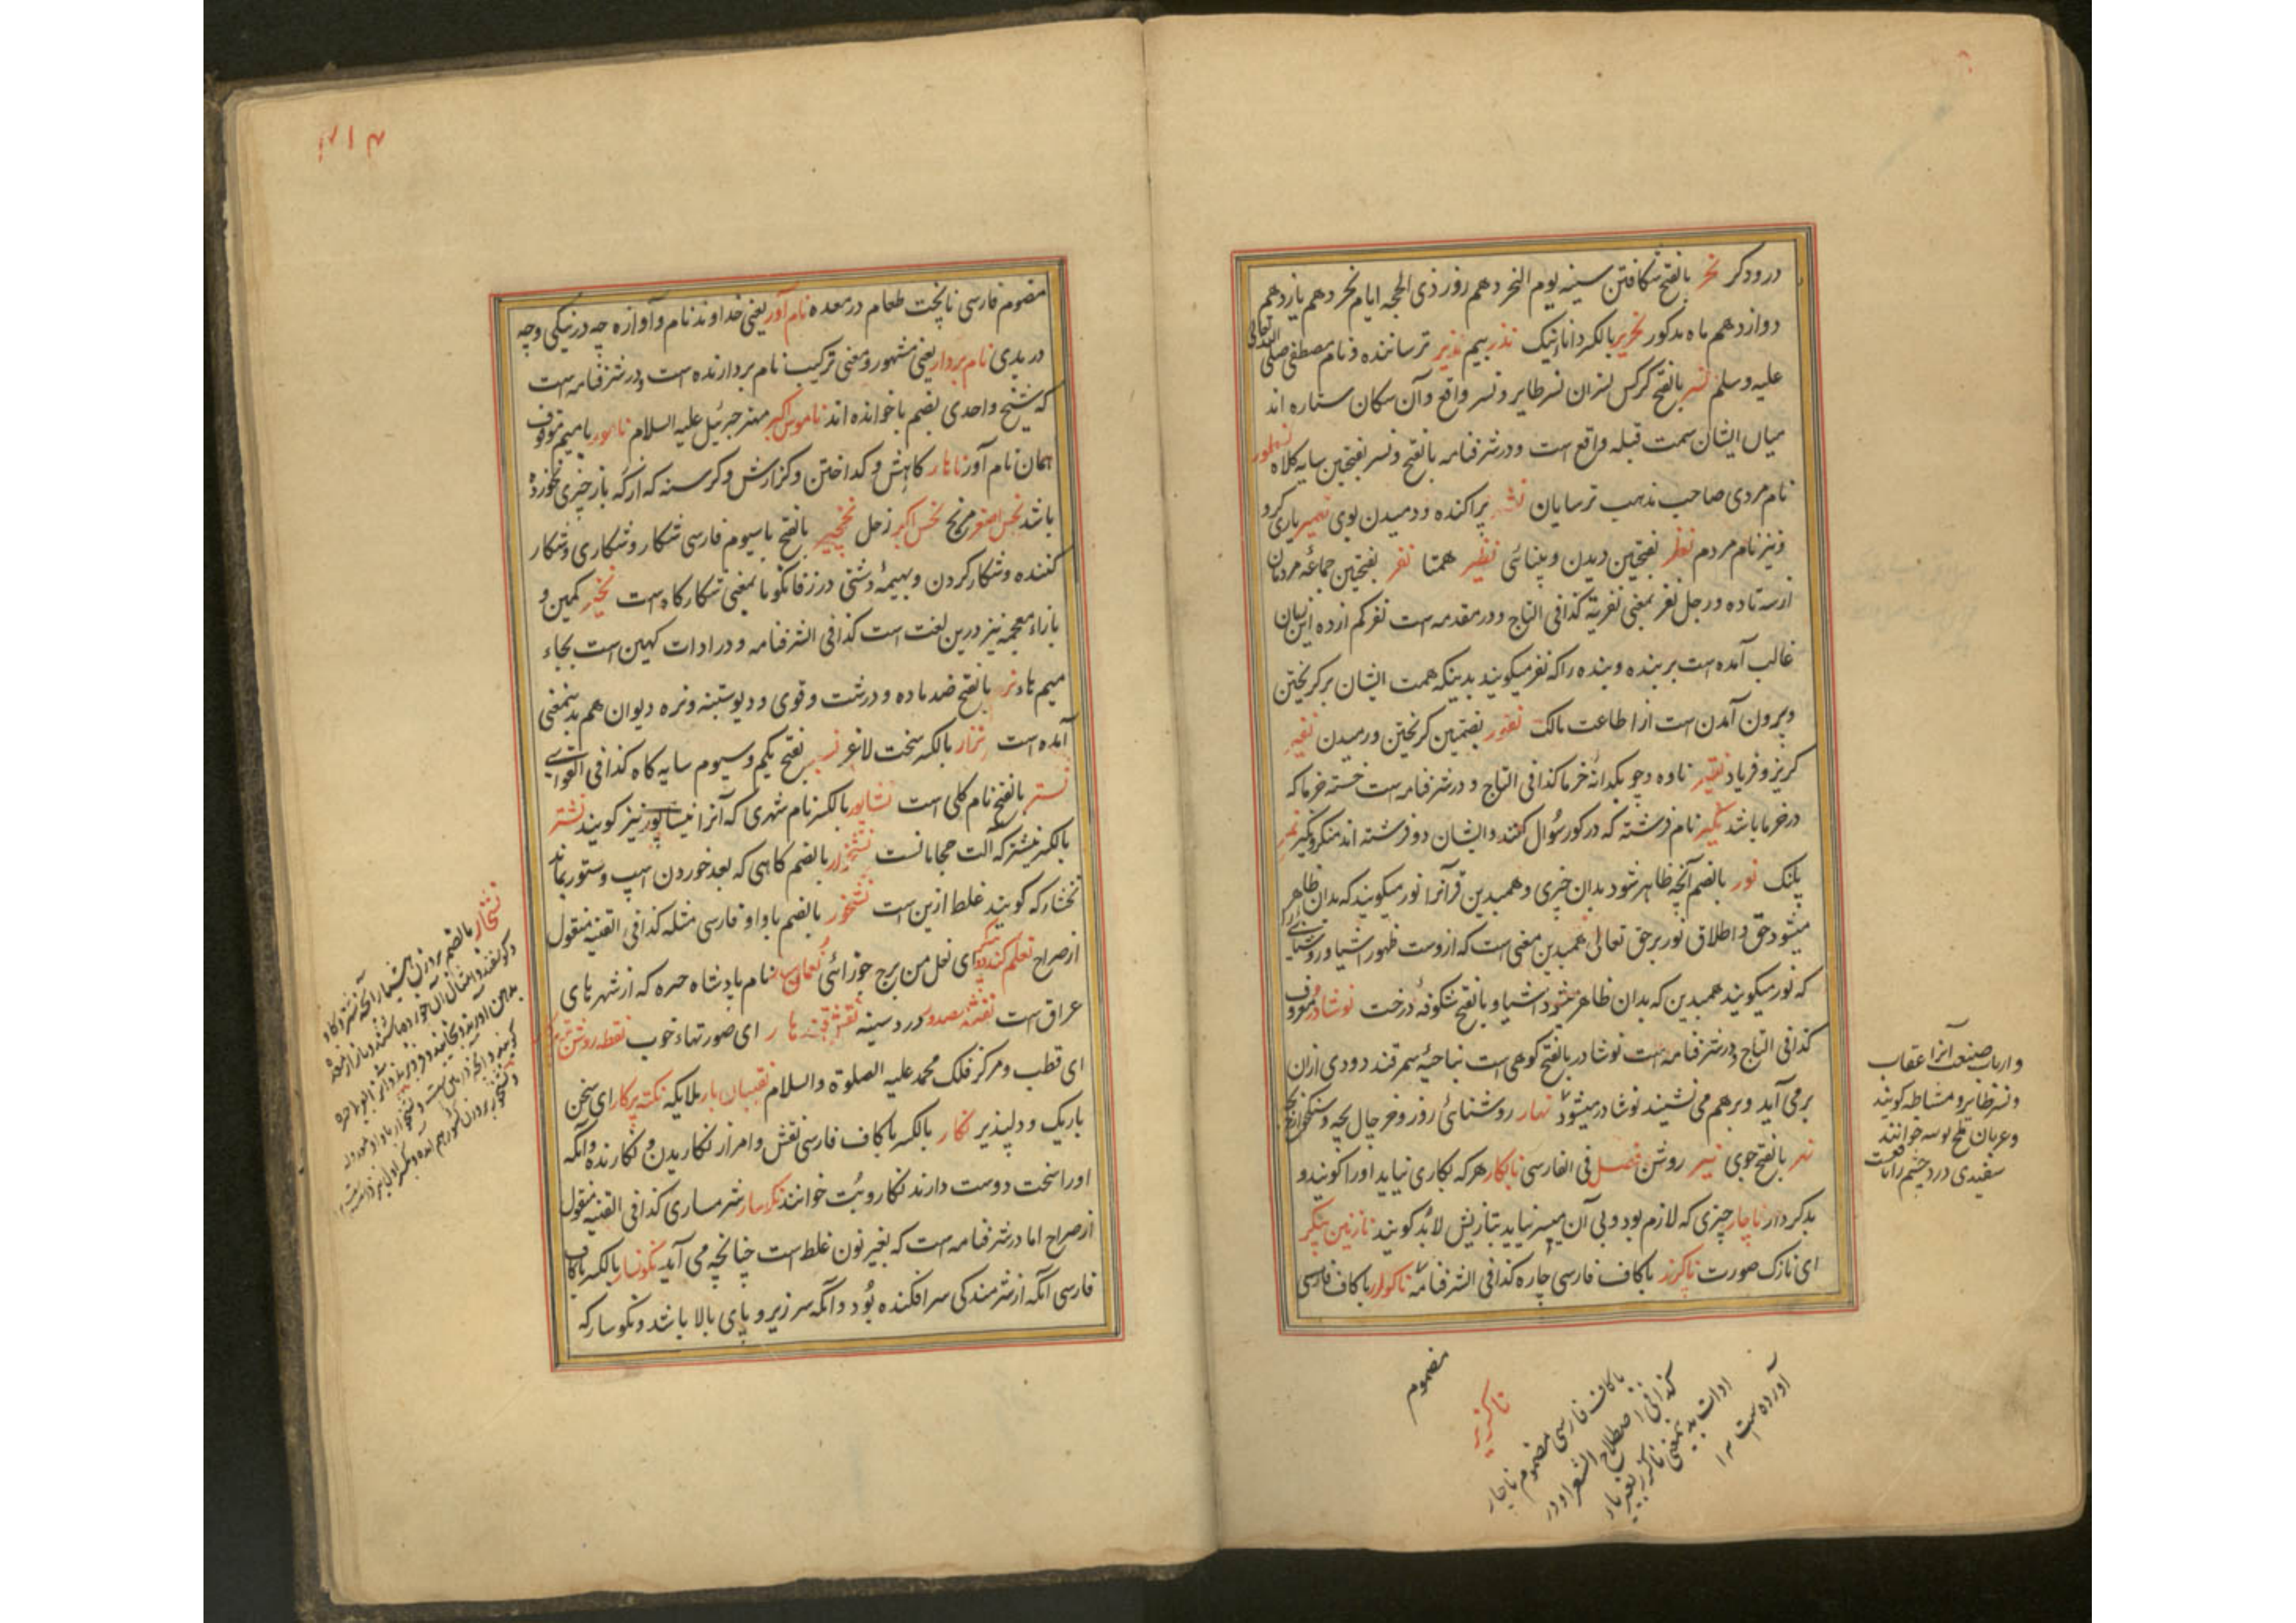 درودکر نحر بالفتح شکافتن سینه یوم النحر دهم روز ذی الحجه ایام نحر دهم یازدهم
دوازدهم ماه مذکور نحریر بالکسر دانا نیک نذر بیم نذیر ترساننده و نام مصطفی صلی الله تعالی
علیه وسلم نسر بالفتح کرکس نسران نسر طایر و نسر واقع وآن سکان ستاره اند
میان ایشان سمت قبله واقع است و در شرفنامه بالفتح و نسر بفتحتین سایه کلاه نسطور
نام مردی صاحب مذهب ترسایان نشر پراکنده و دمیدن بوی نصیر یاری کرو
و نیز نام مردم نظر بفتحتین دیدن و بینائی نظیر همتا نفر بفتحتین جماعه مردمان
از سه تا ده و رجل نفر بمعنی نفریة کذا فی التاج و در مقدمه است نفر کم از ده این بیان
غالب آمده است بر بنده و بنده را که نفر میکویند بدینکه همت ایشان بر کریختن
و بیرون آمدن است از اطاعت مالک نفور بضمتین کریختن و رمیدن نفیر
کریز و فریاد نقیر ناوه و چو بکدانه خرما کذا فی التاج و در شرفنامه است خسته خرما که
در خرما باشد نکیر نام فرشته که در کور سؤال کنند و ایشان دو فرشته اند منکر و نکیر نمر
پلنک نور بالضم آنچه ظاهر شود بدان چیزی و همبدین قرآنرا نور میکویند که بدان ظاهر
میشود حق و اطلاق نور بر حق تعالی همبدین معنی است که ازوست ظهور اشیا و روشنائی را
که نور میکویند همبدین که بدان ظاهر میشود اشیا و بالفتح شکوفه درخت نوشادر معروف
کذا فی التاج و در شرفنامه است نوشادر بالفتح کوهی است بناحیه سمرقند دودی ازان
برمی آید و برهم می نشیند نوشادر میشود نهار روشنائی روز و خرچال بچه
نهر بالفتح جوی نیر روشن فصل فی الفارسی نابکار هر که بکاری نیاید اورا کویند و
بدکردار ناچار چیزی که لازم بود و بی آن میسر نیاید بتازیش لابد کویند نازنین پیکر
ای نازک صورت ناکزر باکاف فارسی چاره کذا فی الشرفنامه ناکوار باکاف فارسی
وارباب صنعت آنرا عقاب
و نسر طایر و مشاطه کویند
و عربان ملح بوسه خوانند
سفیدی در چشم را نافعست
مضموم
ناکزیر
باکاف فارسی مضموم ناچار
کذا فی اصطلاح الشعرا و در
ادات بدینمعنی ناکزر بغیر یا
آورده است ۱۲
مضموم فارسی ناپخت طعام در معده نام آور یعنی خداوند نام وآوازه چه در نیکی و چه
در بدی نام بردار یعنی مشهور و معنی ترکیب نام بردارنده است و در شرفنامه است
که شیخ واحدی بضم با خوانده اند ناموس اکبر مهتر جبرئیل علیه السلام نامور با میم موقوف
همان نام آور ناهار کاهش و کداختن و کزارش و کرسنه که از که باز چیزی نخورده
باشد نحس اصغر مریخ نحس اکبر زحل نخچیر بالفتح با سیوم فارسی شکار و شکاری و شکار
کننده و شکار کردن و بهیمه دشتی در زفانکویا بمعنی شکارکاه است نخیز کمین و
بازاء معجمه نیز درین لغت است کذا فی الشرفنامه و در ادات کهین است بجاء
میم هاء نر بالفتح ضد ماده و درشت و قوی و دیو ستبنه و نره دیوان هم بدینمعنی
آمده است نزار بالکسر سخت لاغر نسر بفتح یکم و سیوم سایه کاه کذا فی القواسی
نستر بالفتح نام کلی است نشاپور بالکسر نام شهری که آنرا نیساپور نیز کویند نشتر
بالکسر نیشتر که آلت حجامانست نشخوار بالضم کاهی که بعد خوردن اسپ و ستور بماند
نخشار که کویند غلط ازین است نشخور بالضم باواو فارسی مثله کذا فی القنیه منقول
از صراح نعلم کندوی ای نعل من برج جوزائی نعمان نام پادشاه حیره که از شهرهای
عراق است نفثه مصدور درد سینه نقش قندهار ای صورتهاء خوب نقطه روشن
ای قطب و مرکز فلک محمد علیه الصلوة والسلام نقیبان بار ملایکه نکته پرکار ای سخن
باریک و دلپذیر نکار بالکسر باکاف فارسی نقش و امر از نکاریدن و نکارنده وآنکه
اورا سخت دوست دارند نکار و بت خوانند نکوسار شرمساری کذا فی القنیه منقول
از صراح اما در شرفنامه است که بغیر نون غلط است چنانچه می آید نکونسار بالکسر باکاف
فارسی آنکه از شرمندکی سرافکنده بود وآنکه سر زیر و پای بالا باشد و نکوسار که
نشخار بالضم بر وزن هشیار آنچه شتر و کاو
و کوسفند و امثال آن خورده باشند و باز از معده
بدهن آورند و بخایند و فرو برند